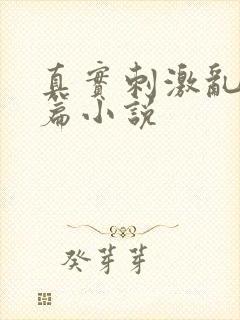 真實刺激亂
篇小說
癸芽芽